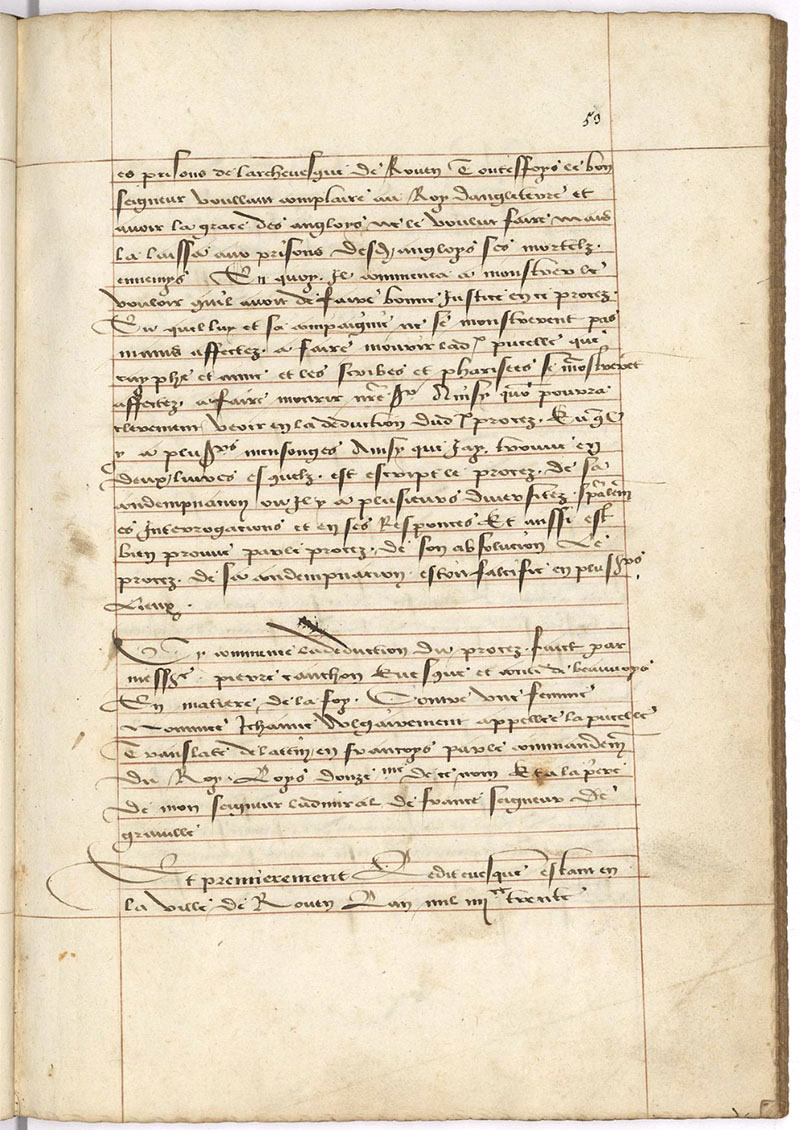 53
es prisons de larchevesque de Rouen Toutesfoys le bon
seigneur voullant complaire au Roy dangleterre et
avoir la grace des angloys ne le voulut faire mais
la laissa aux prisons desd angloys ses mortelz
ennemys En quoy Il commenca a monstrer le
vouloir quil avoit de faire bonne Justice en ce procez
Ou quel luy et sa compaignie ne se monstrerent pas
moins affectez a faire mourir lad pucelle que
cayphe et anne et les scribes et pharisees se monstrerent
affectez a faire mourir nre sr Ainsy quon pourra
clerement veoir en la deduction dud procez
y a plusrs mensonges Ainsy que Jay trouve en
deux livres esquelz est escript le procez de sa
condempnation ou Il y a plusieurs diversitez spalem
es Interrogacions et en ses Responces Et aussi est
bien prouve par le procez de son absolucion Le
procez de sa condempnacion estoit falcifie en plusrs
Lieux
Cy commence la deduction du procez faict par
messre pierre cauchon Evesque et conte de beauvoys
En matiere de la foy Contre une femme
nommee Jehanne vulgairement appellee la pucelle
Translate de latin en francoys par le commandem
Du Roy Loys donze me de ce nom Et a la pere
de mon seigneur ladmiral de france seigneur de
graville
Et premierement Ledit evesque estant en
la ville de Rouen Lan mil iiii cc trente